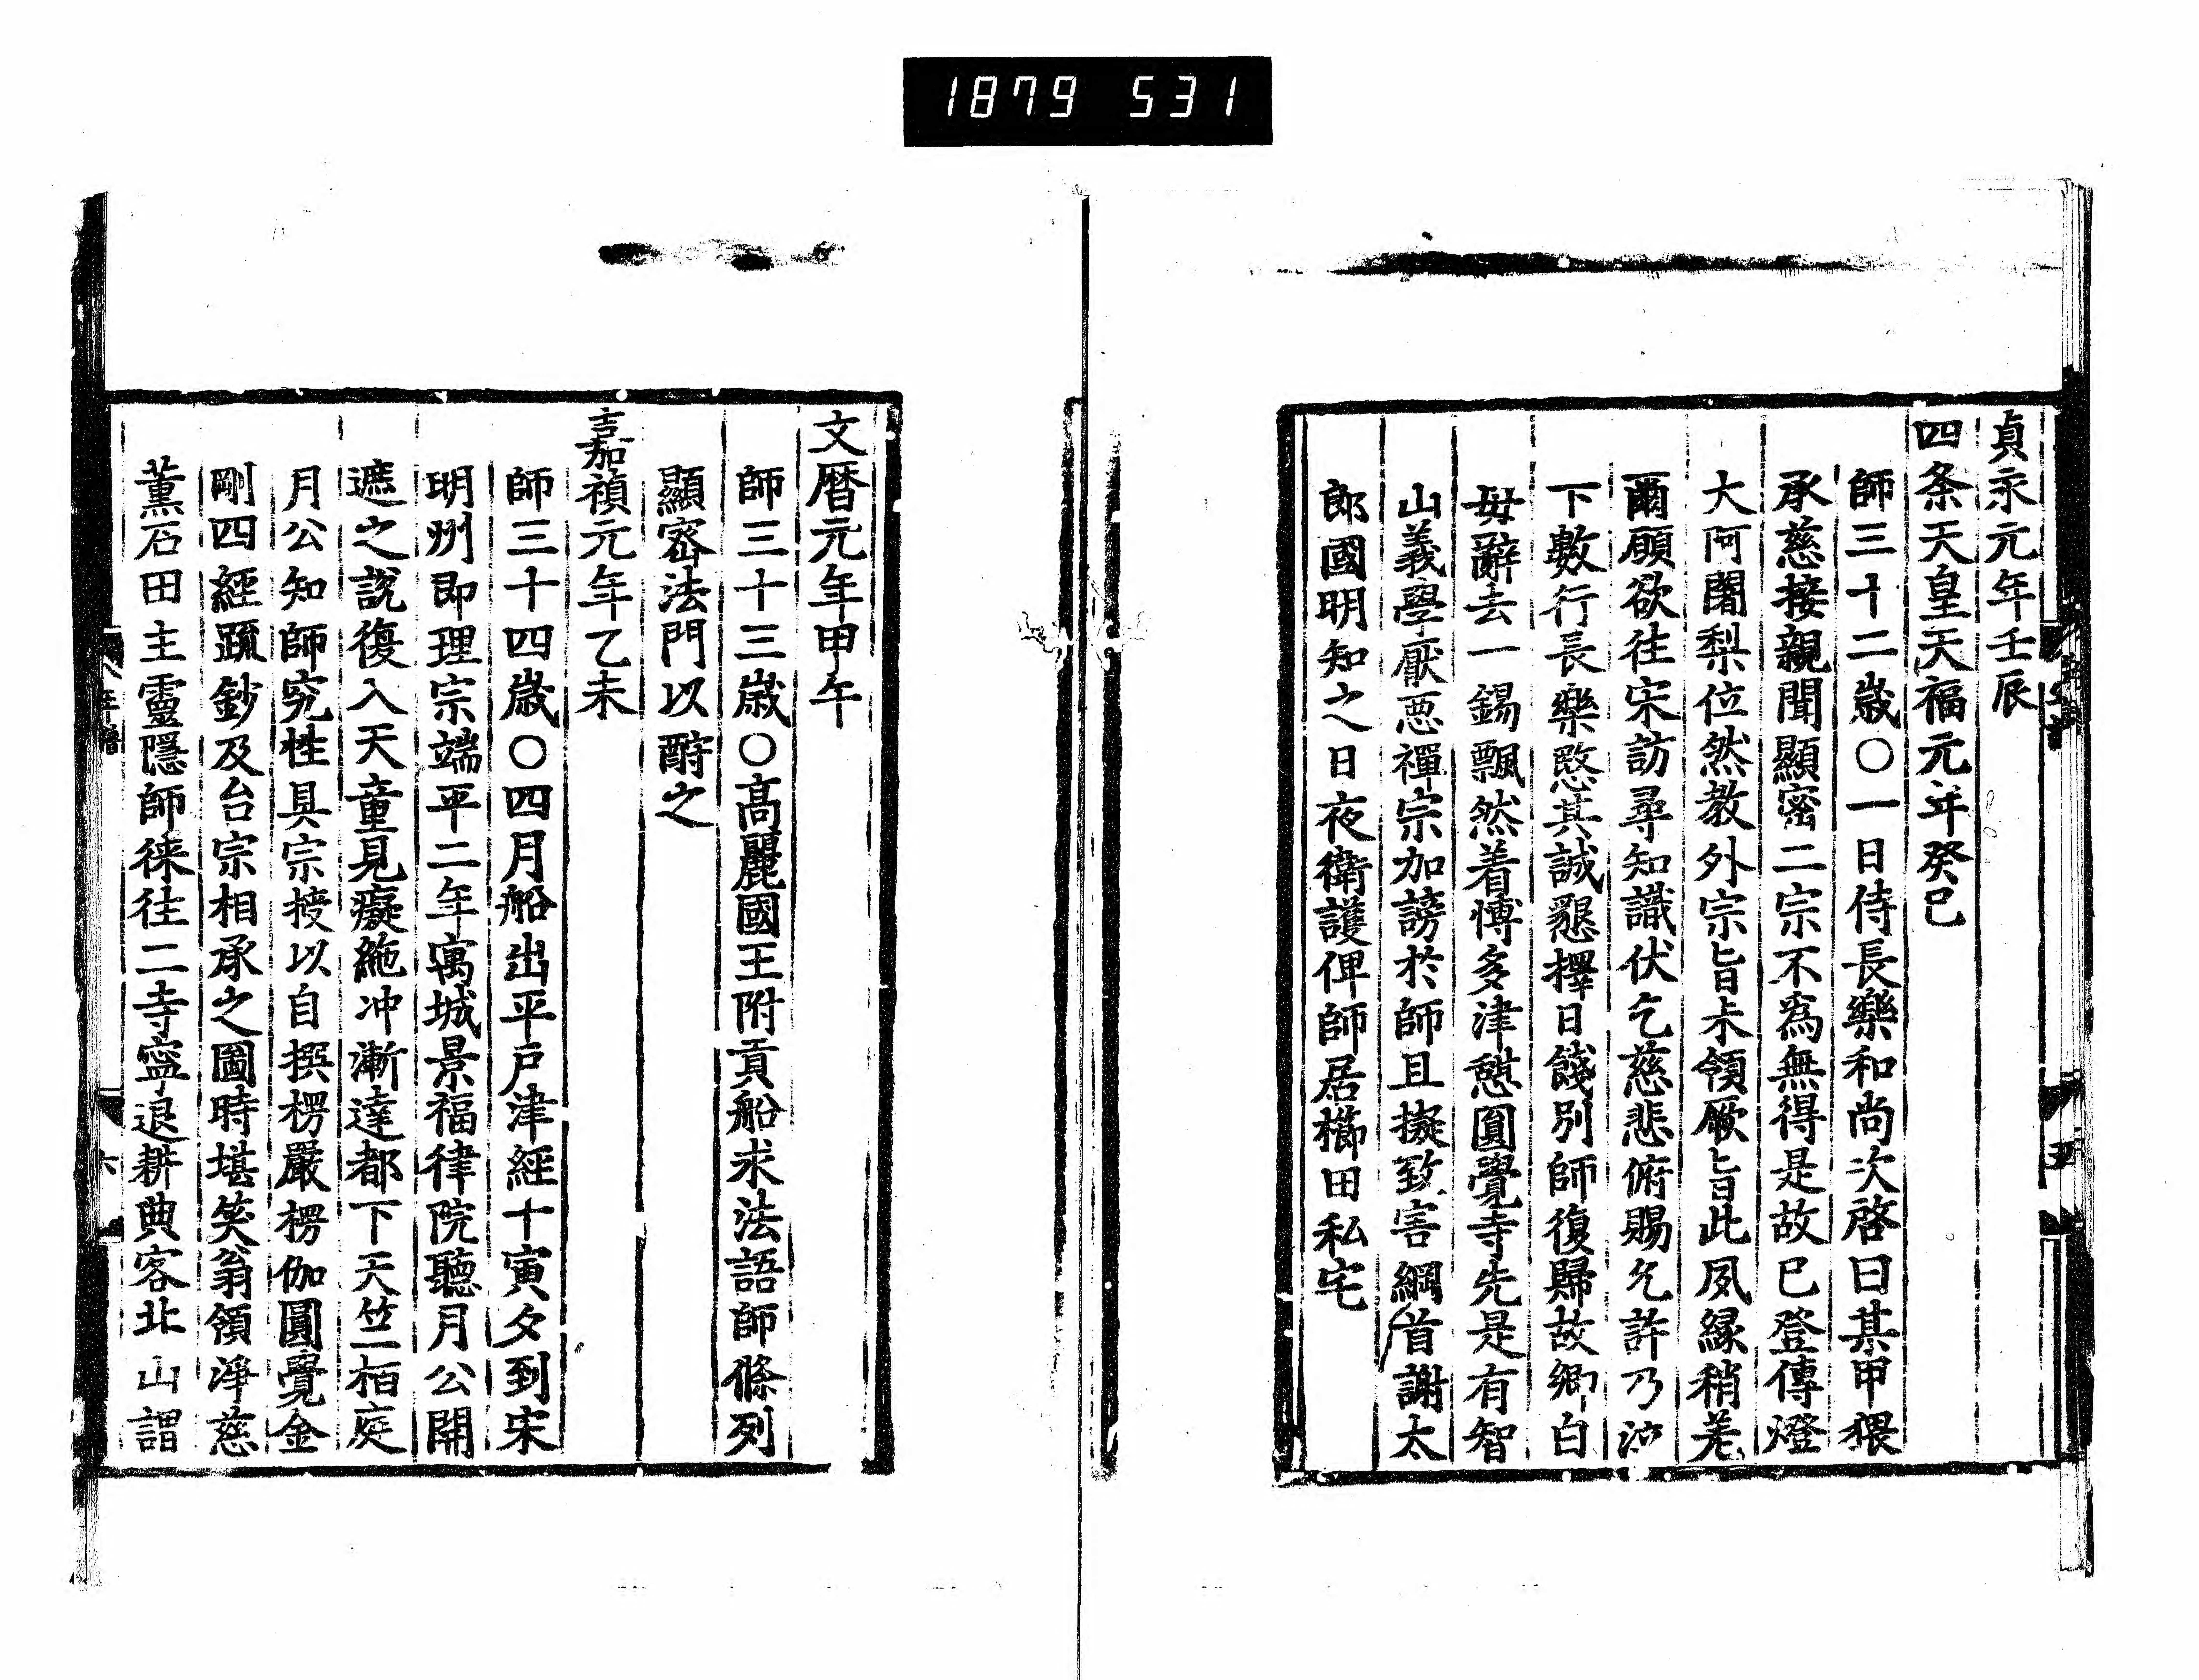 1879 531
貞永元年壬辰
四条天皇天福元年癸巳
師三十二歳〇一日侍長樂和尚次啓曰某甲猥
承慈接親聞顯密二宗不爲無得是故已登傳燈
大阿闍梨位然教外宗旨未領厥旨此夙縁稍差
爾願欲往宋訪尋知識伏乞慈悲俯賜允許乃泣
下數行長樂愍其誠懇擇日餞別師復歸故郷白
母辭去一錫飄然着愽多津憇圓覺寺先是有智
山義學厭惡禪宗加謗於師且擬致害綱首謝太
郎國明知之日夜衛護俾師居櫛田私宅
文暦元年甲午
師三十三歳〇髙麗國王附貢船求法語師條列
顯密法門以酧之
嘉禎元年乙未
師三十四歳〇四月船出平戸津經十寅夕到宋
明州即理宗端平二年寓城景福律院聽月公開
遮之説復入天童見癡絶冲漸達都下天竺栢庭
月公知師究性具宗授以自撰楞嚴楞伽圓覺金
剛四經疏鈔及台宗相承之圖時堪笑翁領淨慈
薫石田主靈隱師徠往二寺寧退耕典客北山謂